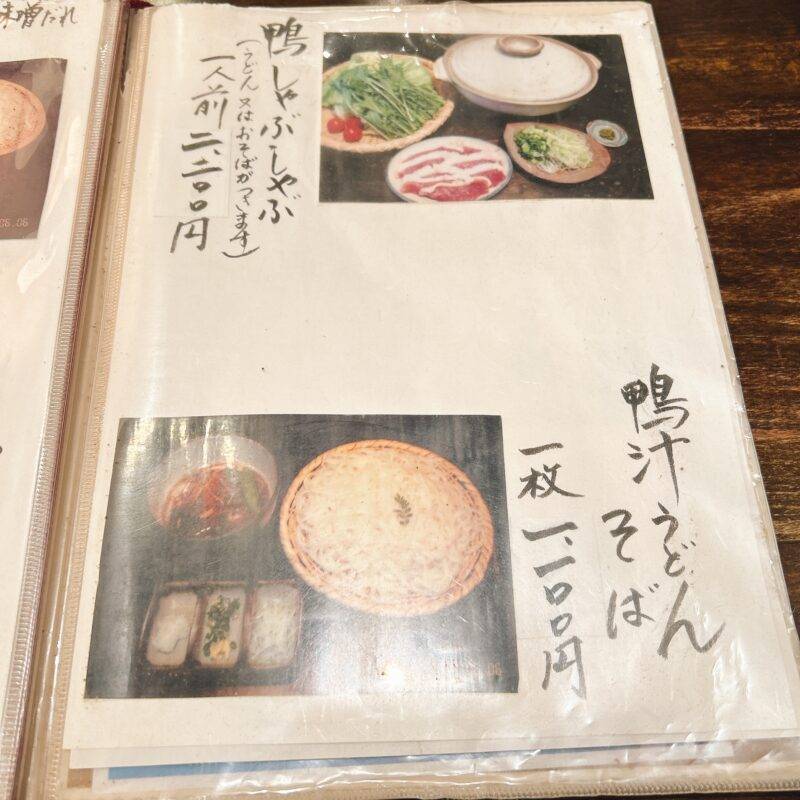 味噌だれ
鴨しゃぶしゃぶ
(うどん又はおそばがつきます)
一人前 二、二〇〇円
鴨汁うどん
そば
一枚 一、一〇〇円